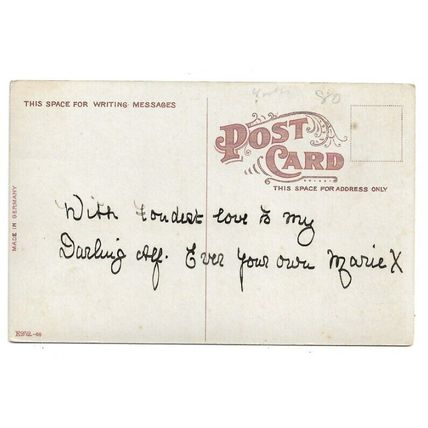 THIS SPACE FOR WRITING MESSAGES
POST CARD
THIS SPACE FOR ADDRESS ONLY
MADE IN GERMANY
With fondest love to my
Darling Alf. Ever Your own Marie X